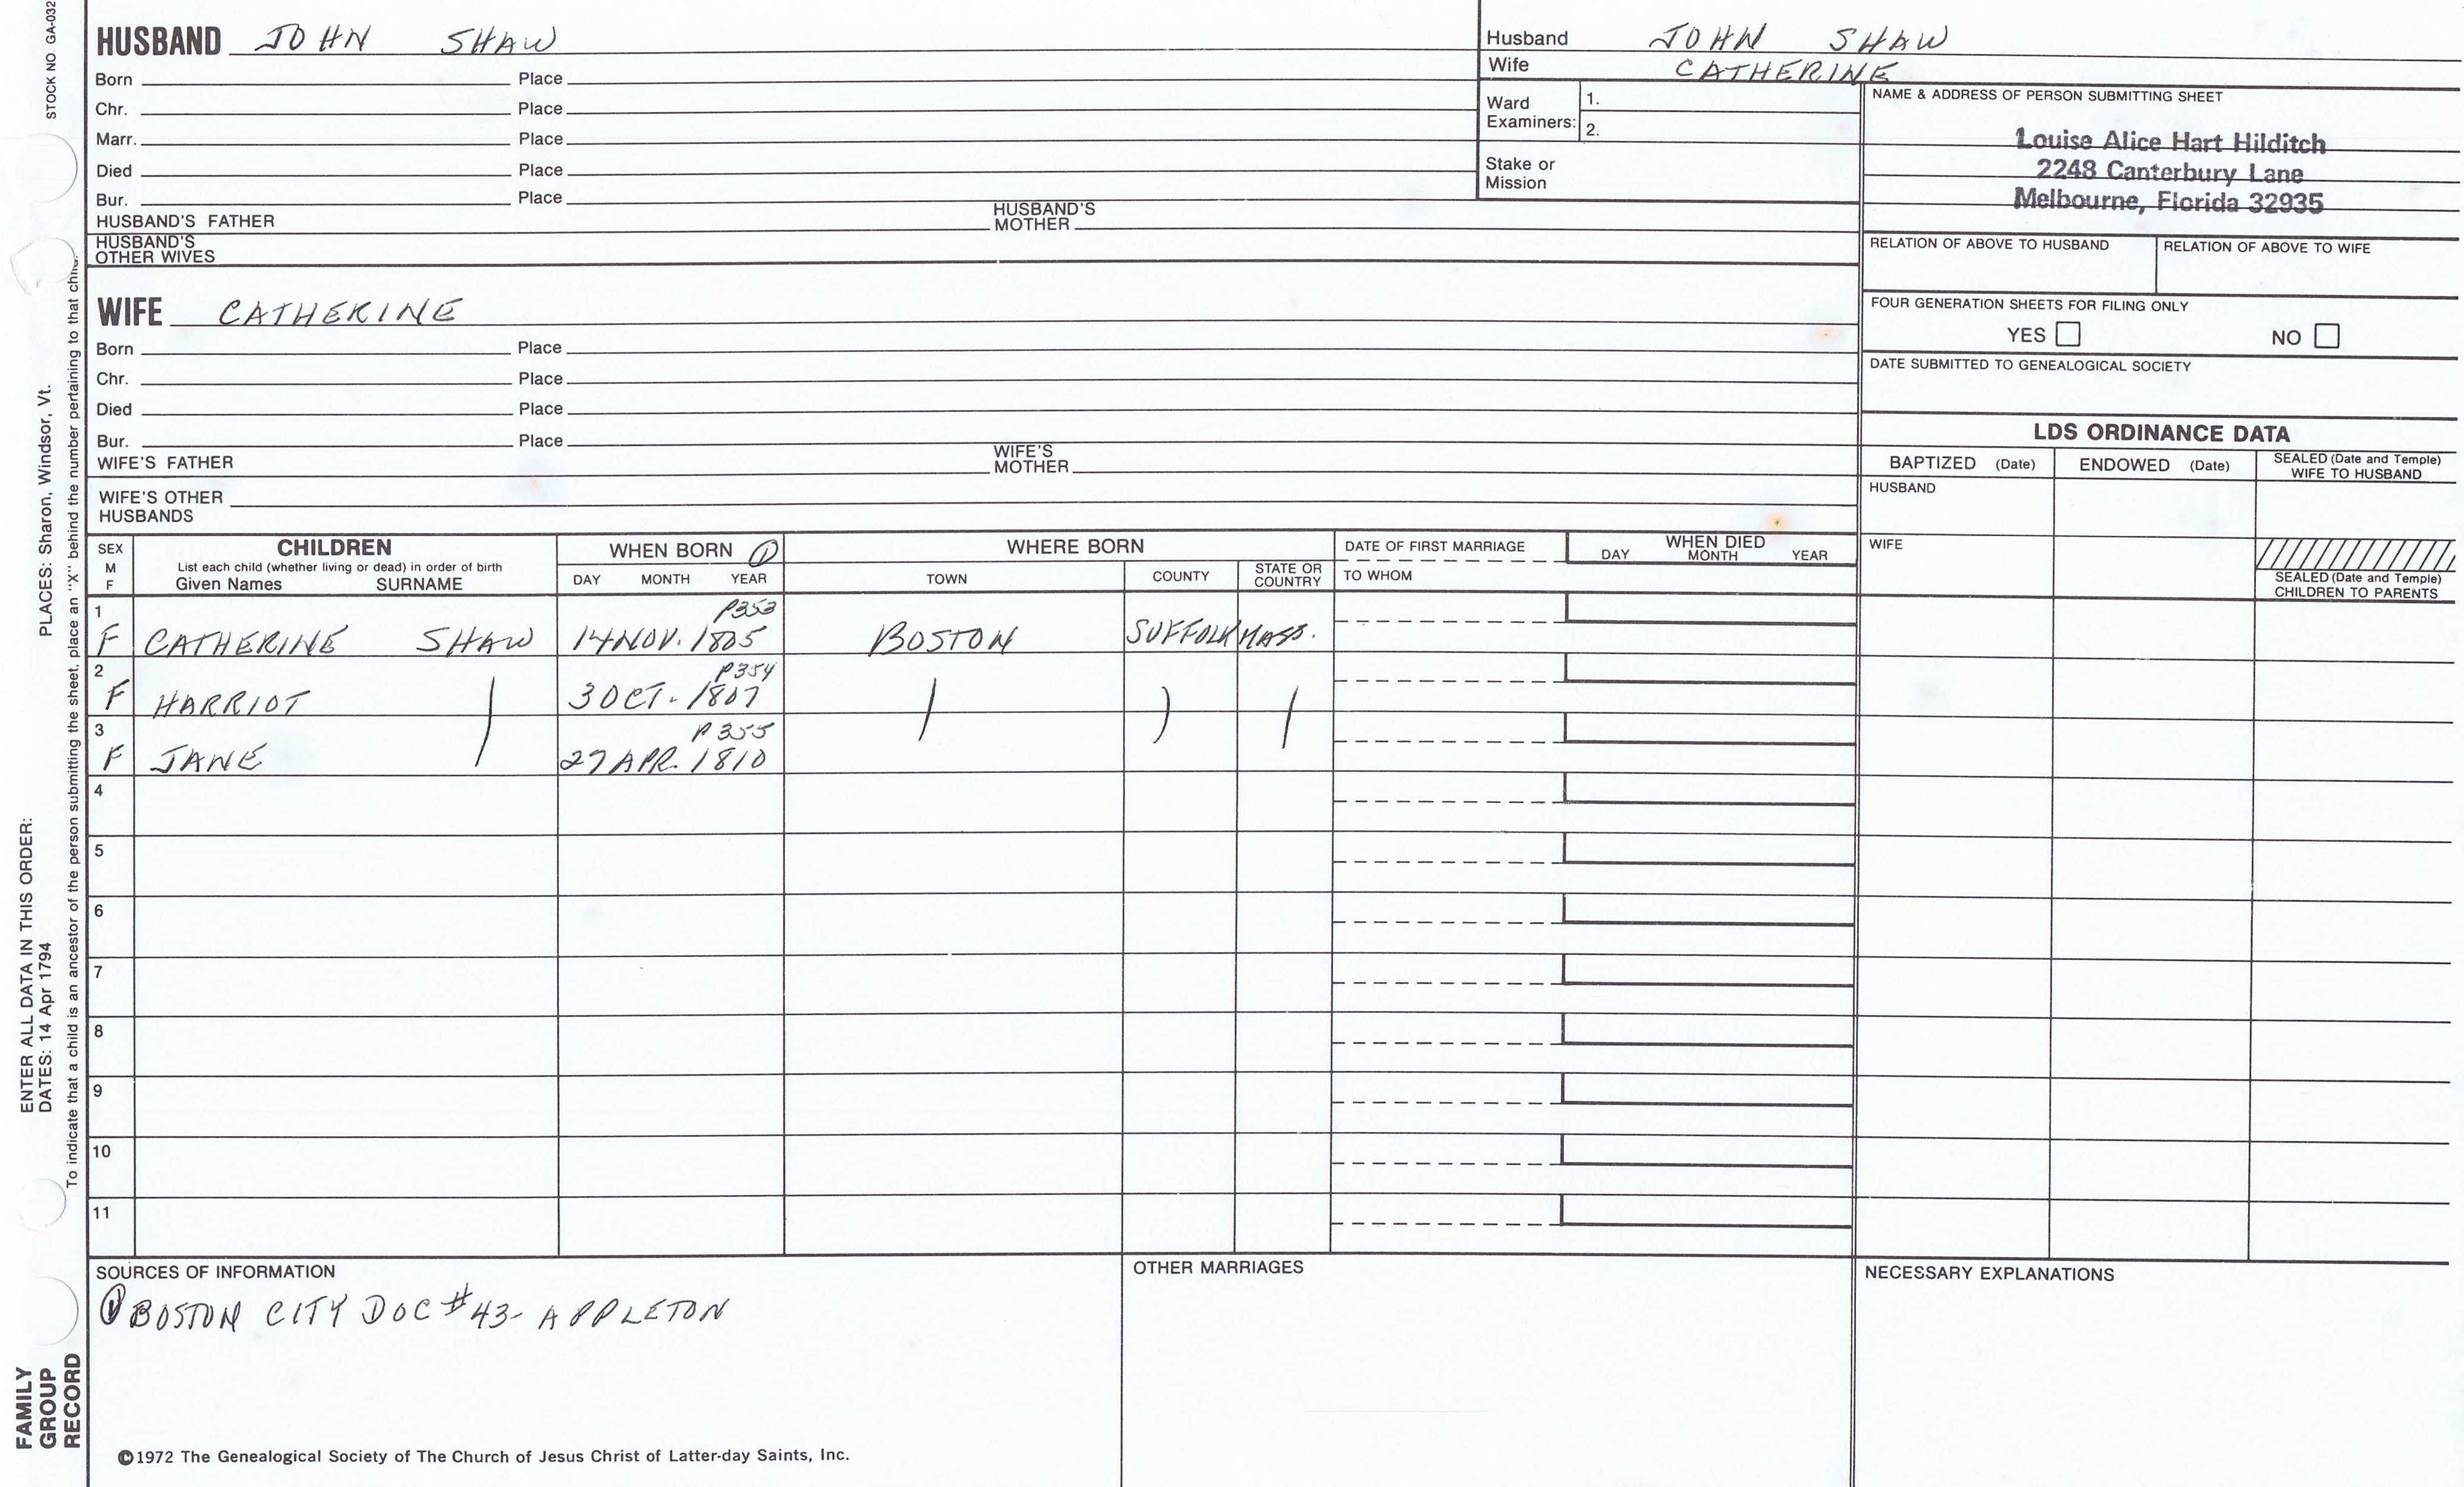 STOCK NO GA-032
HUSBAND JOHN SHAW
Born Place
Chr. Place
Marr. Place
Died Place
Bur. Place
HUSBAND'S FATHER HUSBAND'S MOTHER
HUSBAND'S OTHER WIVES
WIFE CATHERINE
Born Place
Chr. Place
Died Place
Bur. Place
WIFE'S FATHER WIFE'S MOTHER
WIFE'S OTHER HUSBANDS
Husband JOHN SHAW
Wife CATHERINE
Ward Examiners: 1.
2.
Stake or Mission
NAME & ADDRESS OF PERSON SUBMITTING SHEET
Louise Alice Hart Hilditch
2248 Canterbury Lane
Melbourne, Florida 32935
RELATION OF ABOVE TO HUSBAND RELATION OF ABOVE TO WIFE
FOUR GENERATION SHEETS FOR FILING ONLY
YES NO
DATE SUBMITTED TO GENEALOGICAL SOCIETY
LDS ORDINANCE DATA
BAPTIZED (Date) ENDOWED (Date) SEALED (Date and Temple) WIFE TO HUSBAND
HUSBAND
WIFE
SEALED (Date and Temple) CHILDREN TO PARENTS
SEX M F
CHILDREN
List each child (whether living or dead) in order of birth
Given Names SURNAME
WHEN BORN ①
DAY MONTH YEAR
WHERE BORN
TOWN COUNTY STATE OR COUNTRY
DATE OF FIRST MARRIAGE
TO WHOM
WHEN DIED
DAY MONTH YEAR
1 P353
F CATHERINE SHAW 14 NOV. 1805 BOSTON SUFFOLK MASS.
2 P354
F HARRIOT 3 OCT. 1807
3 P355
F JANE 27 APR. 1810
4
5
6
7
8
9
10
11
SOURCES OF INFORMATION
① BOSTON CITY DOC #43- APPLETON
OTHER MARRIAGES
NECESSARY EXPLANATIONS
©1972 The Genealogical Society of The Church of Jesus Christ of Latter-day Saints, Inc.
FAMILY GROUP RECORD
ENTER ALL DATA IN THIS ORDER:
DATES: 14 Apr 1794 PLACES: Sharon, Windsor, Vt.
To indicate that a child is an ancestor of the person submitting the sheet, place an "X" behind the number pertaining to that child.